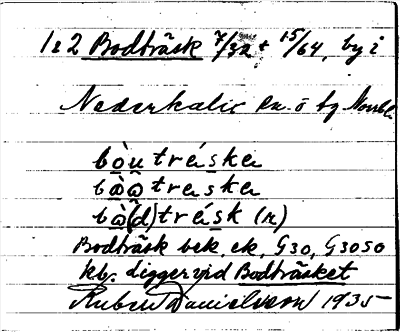 1 & 2 Bodträsk 7/32 + 15/64, by i
Nederkalix sn. o by Norrb.
bòu tráska
bòo traska
bò(d)trásk (n)
Bodträsk bek. ek. G30, G30SO
kby. ligger vid Bodträsket
Ruben Danielsson 1935